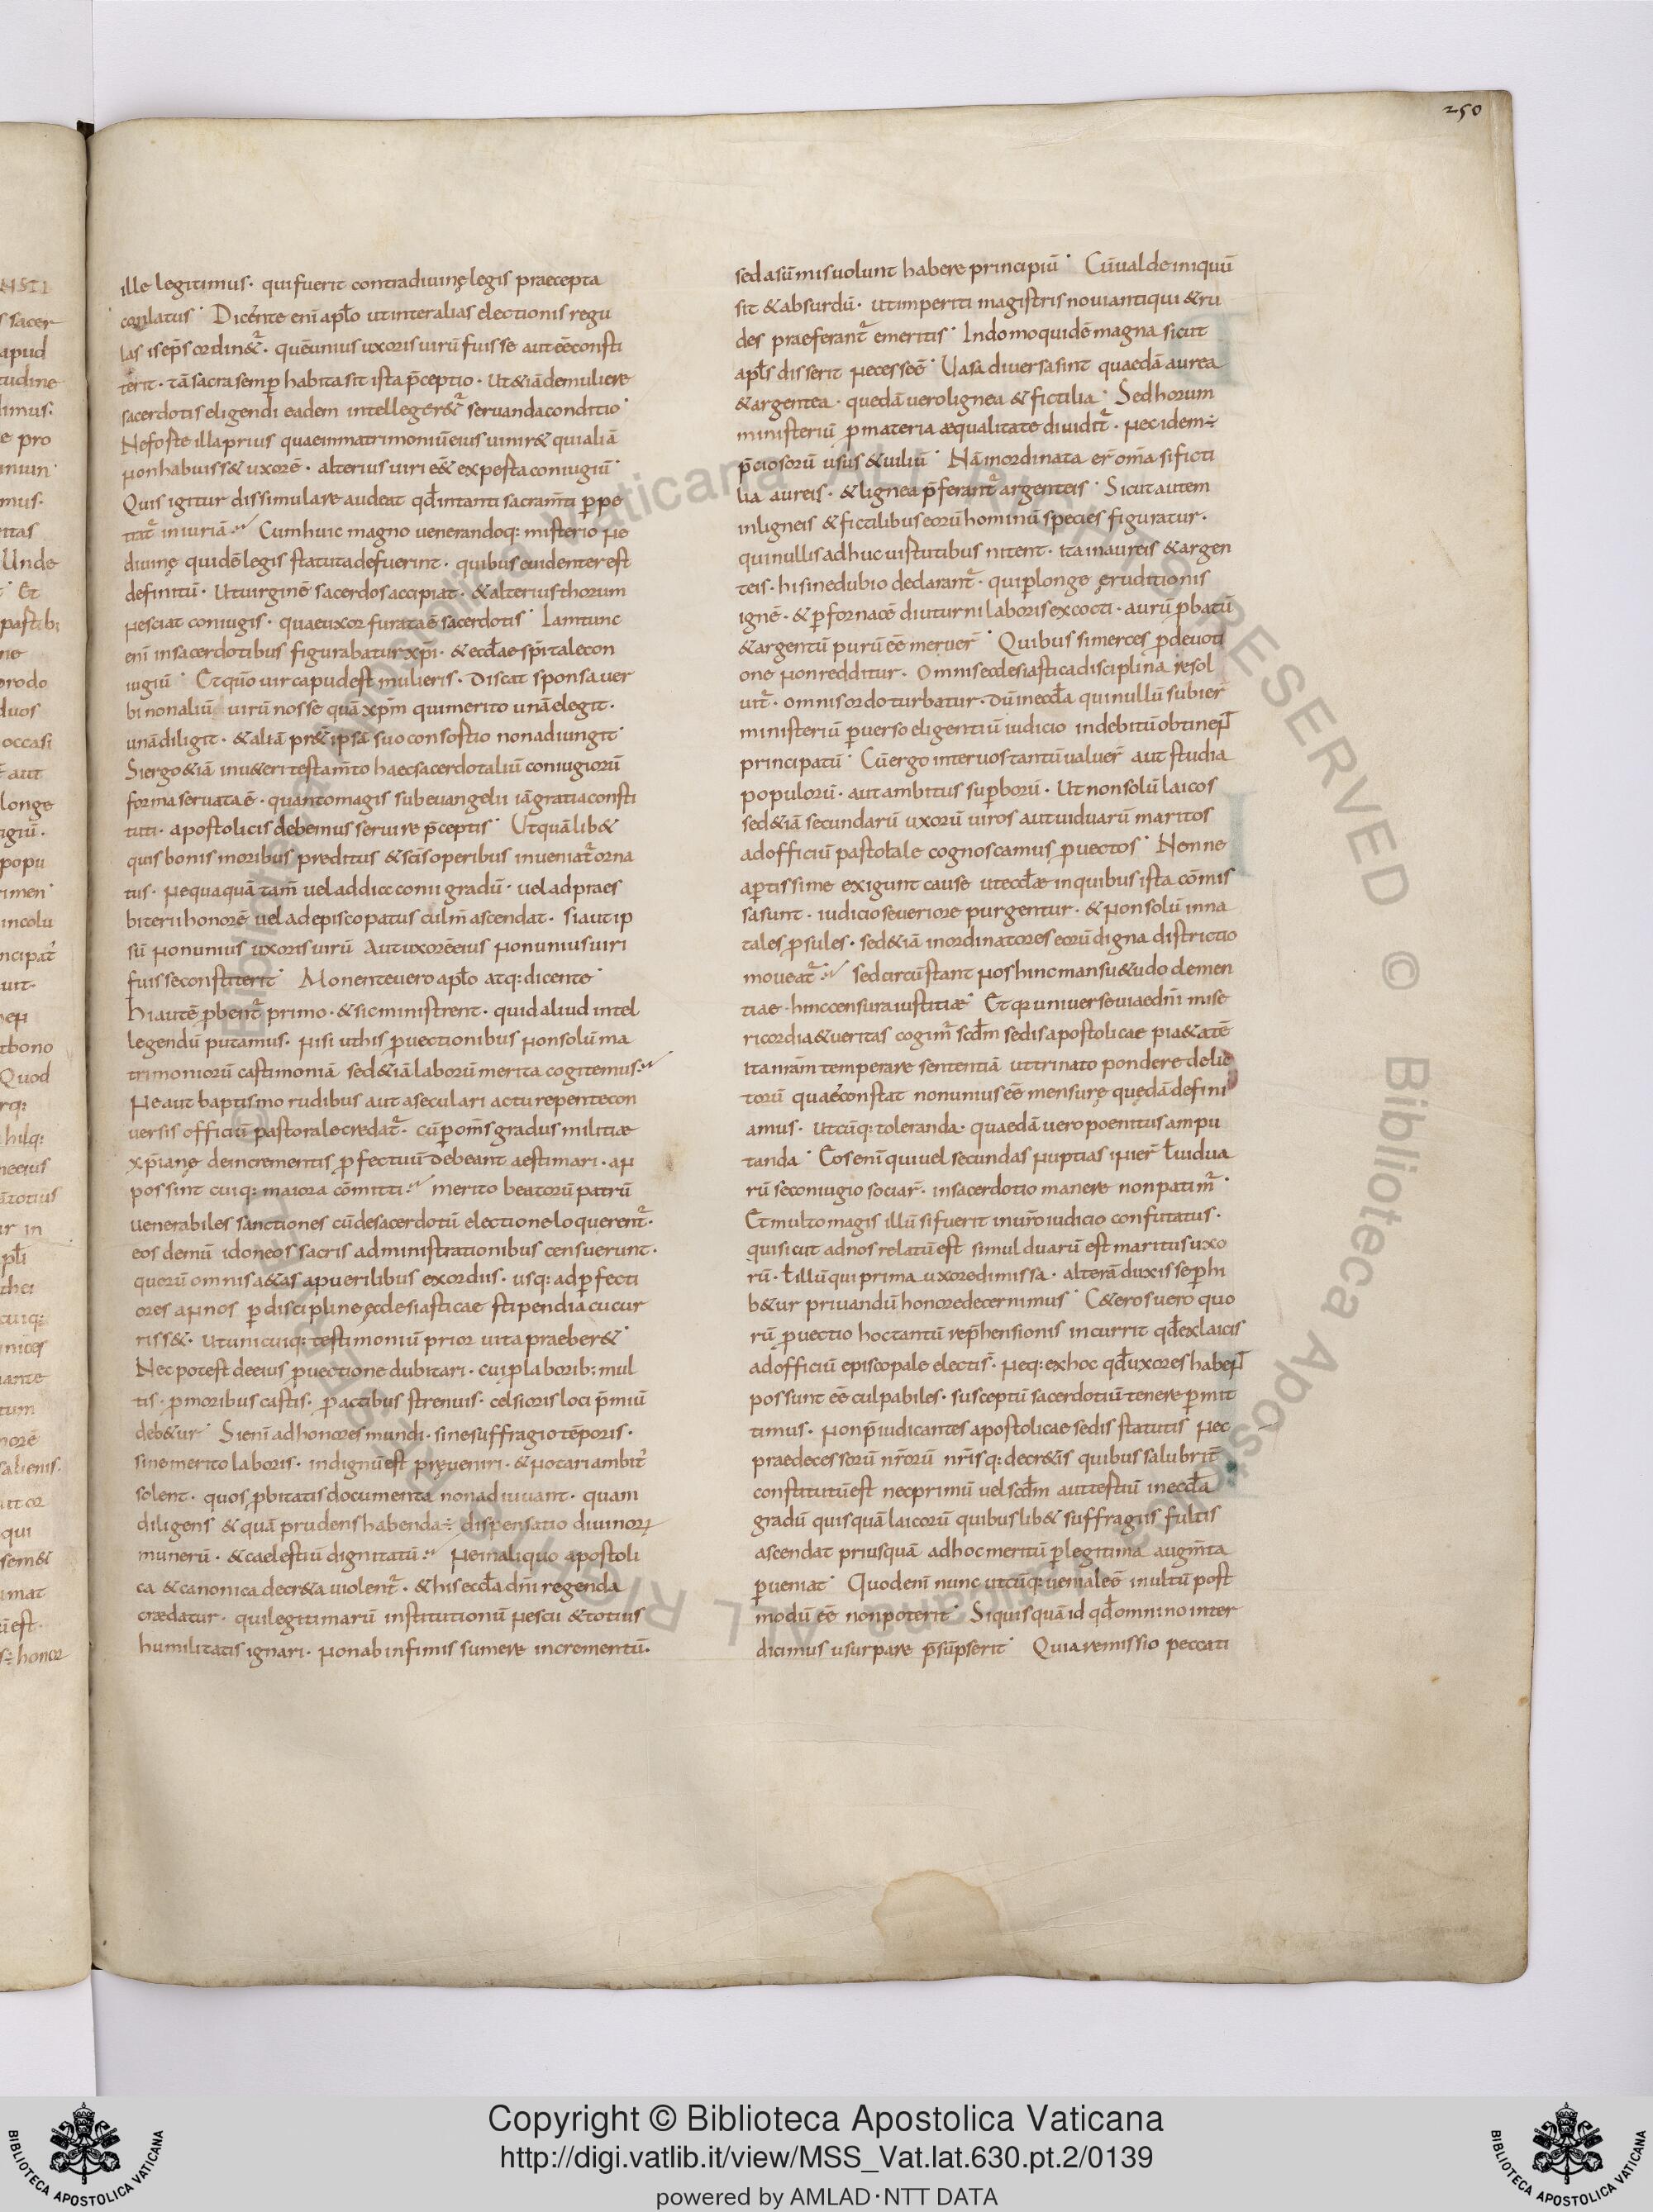 250
ille legitimus· quifuerit contradiuinę legis praecepta
conlatus· Dicente enī aplo utinteralias electionis regu
las isepīs ordinet̄· quēunius uxoris uirū fuisse aut eēconsti
terit· tā sacra semp habita sit ista p̄ceptio· ut&iādemuliere
sacerdotis eligendi eadem intelleger&̄ seruandaconditio·
Neforte illaprius quaeinmatrimoniū eius uenir& quialiā
nonhabuiss& uxorē· alterius uiri eē& expertaconiugiū·
Quis igitur dissimulare audeat qd̄intanti sacram̄ti p̱pe
trat̄ iniuriā· Cumhuic magno uenerandoq: misterio ne
diuinę quidē legis statutadefuerint· quibus euidenter est
definitū· Utuirginē sacerdosaccipiat· &alteriusthorum
nesciat coniugis· quaeuxor futuratē sacerdotis· Iamtunc
enī insacerdotibus figurabatur xp̄i· &eccl̄ae spīntalecon
iugiū· Etqūo uir caput est mulieris· Discat sponsauer
bi nonaliū uirū nosse quā xp̄m quimerito unā elegit·
unādiligit· &aliā pr&ipsā suo consortio nonadiungit·
Siergo&iā inu&eri testam̄to haecsacerdotaliū coniugiorū
formaseruataē· quantomagis subeuangelii iāgratiaconsti
tuti· apostolicis debemus seruire p̄ceptis· Utquālib&
quis bonis moribus preditus &sc̄isoperibus inueniat̄ orna
tus· nequaquā tam̄ ueladdiaconii gradū· ueladpraes
biterii honorē ueladepiscopatus culm̄ ascendat· siautip
sū nonunius uxoris uirū Autuxorēeius nonuniusuiri
fuisseconstiterit· Monenteuero aplo atq: dicente·
Hiautē p̱bent̄ primo· &sicministrent· quidaliud intel
legendū putamus· nisi uthis p̱uectionibus nonsolū ma
trimoniorū castimoniā sed&iā laborū merita cogitemus·
Neaut baptismo rudibus aut aseculari acturepentecon
uersis officiū pastoralecredat̄· cūp̱ om̄s gradus militiæ
xp̄ianę deincrementis p̱fectuū debeant aestimari· an
possint cuiq: maiora cōmitti· merito beatorū patrū
uenerabiles sanctiones cūdesacerdotū electione loquerent̄·
eos demū idoneos sacris administrationibus censuerunt·
quorū omnisa&as apuerilibus exordiis· usq: adp̱fecti
ores annos p̱ disciplinę ecclesiasticae stipendia cucur
riss&· utunicuiq: testimoniū prior uita praeber&·
Nec potest deeius p̱uectione dubitari· cuip̱ laborib: mul
tis· p̱moribus castis· p̱actibus strenuis· celsioris loci p̄miū
deb&ur· Sienī adhonores mundi· sinesuffragio tēporis·
sinemerito laboris· indignū est pręueniri· &notari ambit̄
solent· quos p̱bitatis documenta nonadiuuant· quam
diligens &quā prudens habenda÷ dispensatio diuinorum
munerū· &caelestiū dignitatū· Neinaliquo apostoli
ca &canonica decr&a uiolent̄· &hisecd̄a dn̄i regenda
crædatur· quilegitimarū institutionū nescii &totius
humilitatis ignari· nonabinfimis sumere incrementū·
sedasūmisuolunt habere principiū· Cūualdeiniquū
sit &absurdū· utimperiti magistris nouiantiqui &ru
des praeferant̄ emeritis· Indomoquidē magna sicut
apl̄s disserit necesseē· Uasa diuersasint quaedā aurea
&argentea· quedā uerolignea &fictilia· Sedhorum
ministeriū p̱materia æqualitate diuidit̄· necidem÷
p̄ciosorū usus &uiliū· Nā inordinata er̄ om̄a sificti
lia aureis· &lignea p̄ferant̄ argenteis· Sicut autem
inligneis &fictilibus eorū hominū species figuratur·
quinullis adhuc uirtutibus nitent· ita inaureis &argen
teis· hi sinedubio declarant̄· quip̱longe ęruditionis
ignē· &p̱fornacē diuturni laboris excocti· aurū p̱batū
&argentū purū eē meruer̄· Quibus simerces p̱deuoti
one nonredditur· Omnis ecclesiastica disciplina resol
uit̄· omnis ordo turbatur· dū inecd̄a quinullū subier̄
ministeriū p̱uerso eligentiū iudicio indebitū obtinent
principatū· Cūergo interuos tantū ualuer̄ aut studia
populorū· autambitus sup̱borū· Ut nonsolū laicos
sed&iā secundarū uxorū uiros autuiduarū maritos
adofficiū pastorale cognoscamus p̱uectos· Nonne
ap̱tissime exigunt cause utecd̄æ inquibus ista cōmis
sasunt· iudicioseueriore purgentur· &nonsolū inna
tales p̱sules· sed&iā inordinatores eorū digna districtio
moueat̄· sedcircūstant nos hinc mansu&udo clemen
tiae· hinccensura iustitiæ· Etqr uniuerseuiaedn̄i mise
ricordia&ueritas cogim̄ scd̄m sedis apostolicae pia&atē
itanrām temperare sententiā uttrinato pondere delic
torū quaeconstat nonunius eē mensurę quędā defini
amus· utcūq: toleranda· quaedā uero poenitus ampu
tanda· Eos enī quiuel secundas nuptias inier̄ ł uidua
rū seconiugio sociar̄· insacerdotio manere nonpatim̄·
Etmultomagis illū sifuerit inūroiudicio confutatus·
quisicut adnos relatū est simul duarū est maritus uxo
rū· ł illū qui prima uxoredimissa· alterā duxisse p̱hi
b&ur priuandū honoredecernimus· C&eros uero quo
rū p̱uectio hoctantū rep̄hensionis incurrit qd̄exlaicis
adofficiū episcopale electis̄· neq: exhoc qd̄uxores habent
possunt eē culpabiles· susceptū sacerdotiū tenere p̱mit
timus· nonp̄iudicantes apostolicae sedis statutis nec
praedecessorū nr̄orū nr̄isq: decr&is quibus salubrit̄
constitutū est neprimū uel scd̄m auttertiū inecd̄a
gradū quisquā laicorū quibuslib& suffragiis fultis
ascendat priusquā adhoc meritū p̱legitima augm̄ta
p̱ueniat· Quodenī nunc utcūq: uenialeē inultū post
modū eē nonpoterit· Siquisquā id qd̄omnino inter
dicimus usurpare p̄sūpserit· Quia remissio peccati
Copyright © Biblioteca Apostolica Vaticana
http://digi.vatlib.it/view/MSS_Vat.lat.630.pt.2/0139
powered by AMLAD·NTT DATA
BIBLIOTECA APOSTOLICA VATICANA
BIBLIOTECA APOSTOLICA VATICANA